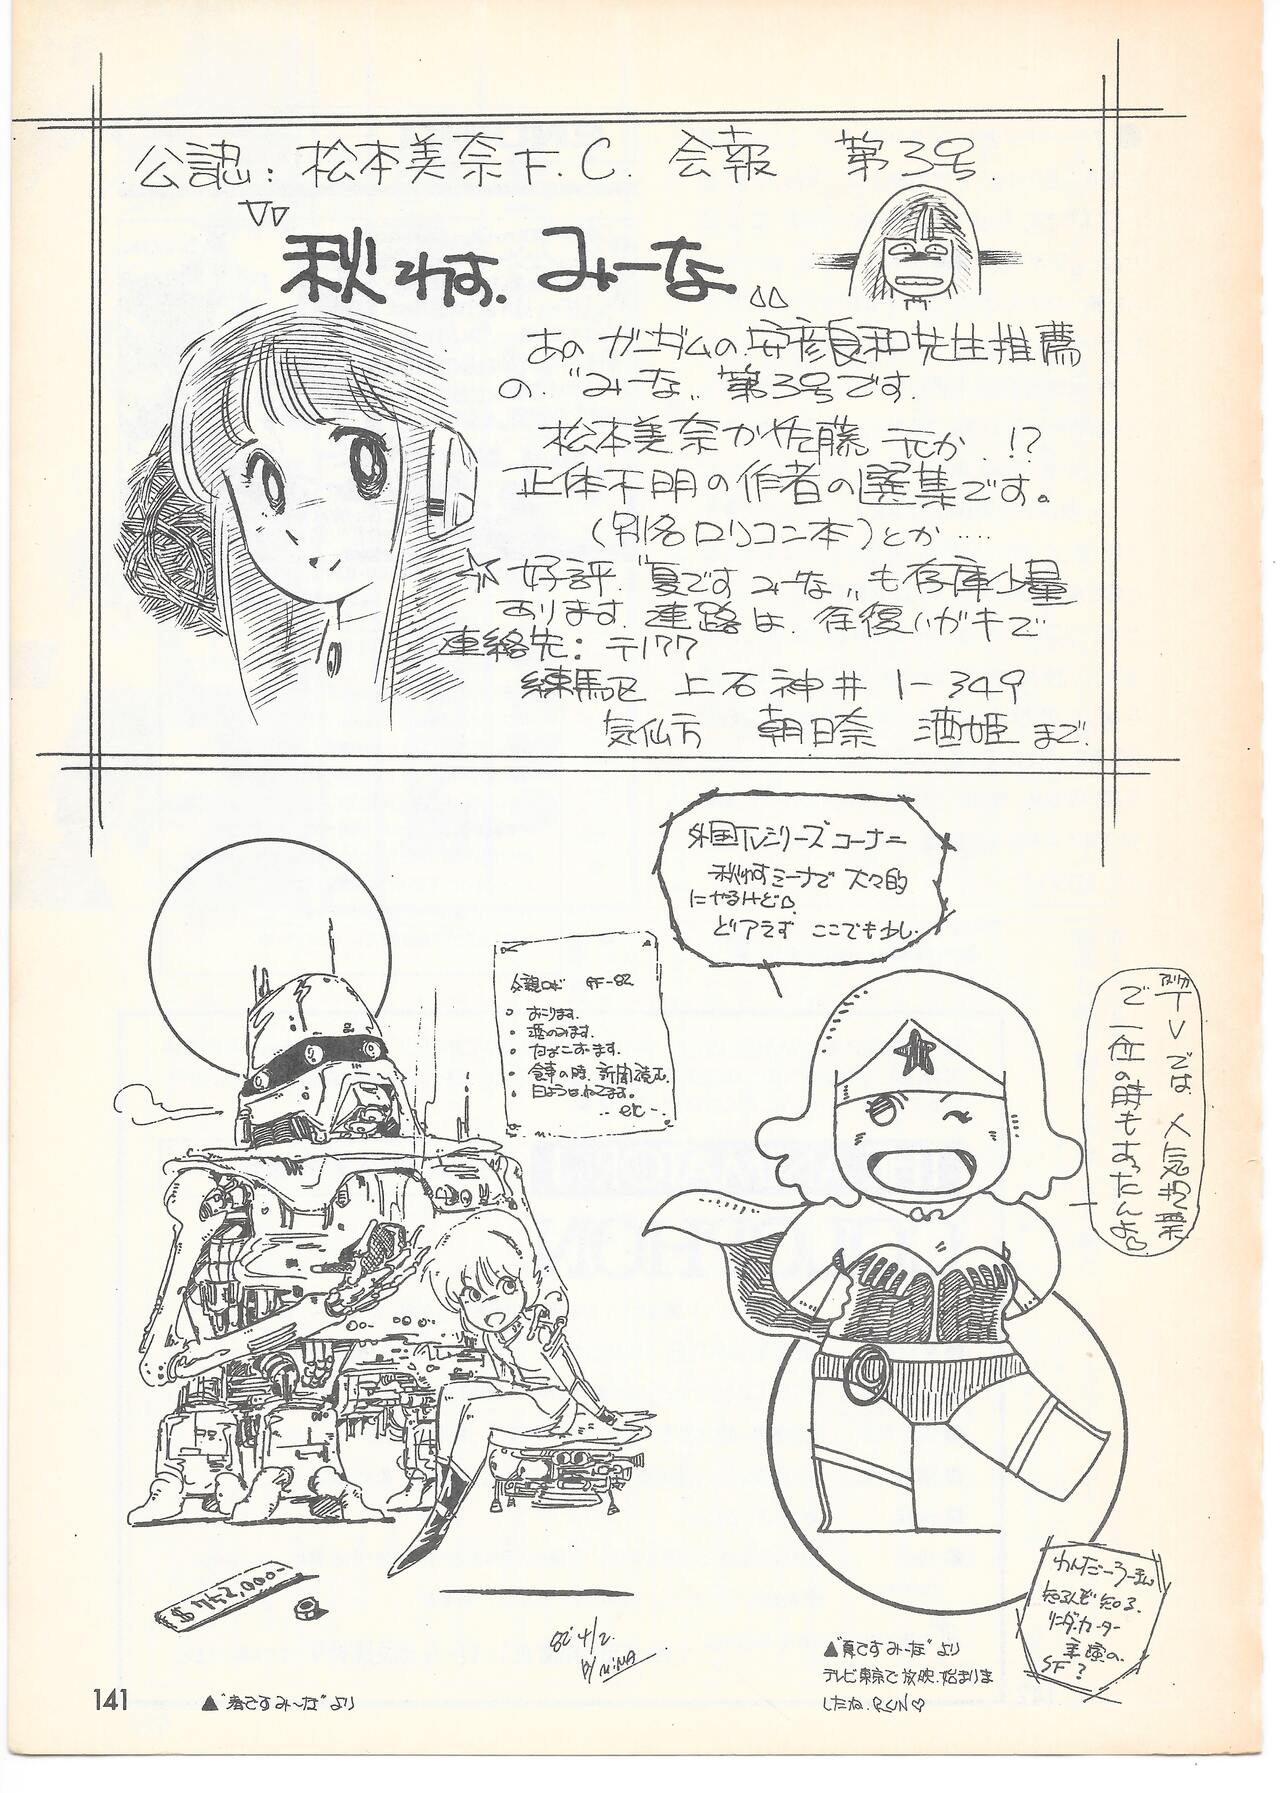 公認：松本美奈F.C. 会報 第3号.
"秋わす.みーな"
あのガンダムの安彦良和先生推薦
の"みーな"第3号です.
松本美奈か佐藤 元か.!?
正体不明の作者の選集です。
(別名ロリコン本)とか….
☆好評"夏です みーな"も在庫少量
あります.連路は.往復ハガキで
連絡先：〒177
練馬区 上石神井 1-349
気仙方 朝日奈 酒姫まで.
外国TVシリーズコーナー
秋わすミーナで大々的
にやるけど
とりアえず ここでも少し.
アメリカ
TVでは人気投票
で一位の時もあったんよ
父親ロボ GF-82
・おこります.
・酒のみます.
・たばこすいます.
・食事の時.新聞読む.
・日ようはねてます.
…etc-.
$752,000-
82' 4/2.
By MINA
わんだーうーまん
知るんぞ知る.
リンダ.カーター
主演の.
SF?
▲"夏ですみーな"より
テレビ東京で放映.始まりま
したね.RUN♡
141
▲"春ですみ〜な"より